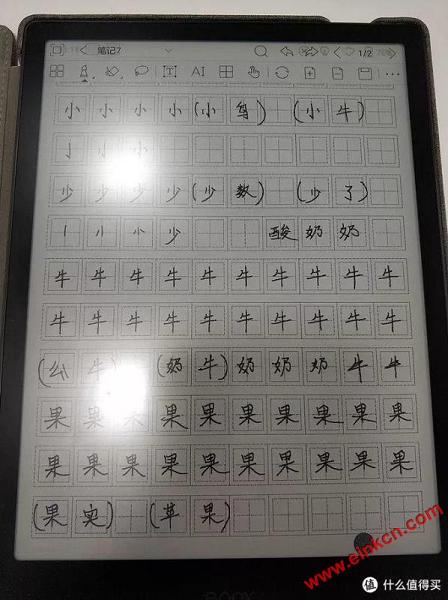 笔记7 1/2
AI
小 小 小 小 (小 鸟) (小 牛)
亅 小
少 少 少 少 (少 数) (少 了)
丨 小 小 少 酸 奶 奶
牛 牛 牛 牛 牛 牛 牛 牛 牛 牛
牛 牛 牛 牛 牛 牛 牛 牛 牛 牛
( 牛 (奶 牛) 奶 奶 奶 牛 牛
果 果 果 果 果 果 果 果 果 果
果 果 果 果 果 果 果 果 果 果
(果 实) (苹 果)
www.einkcn.com
值 什么值得买